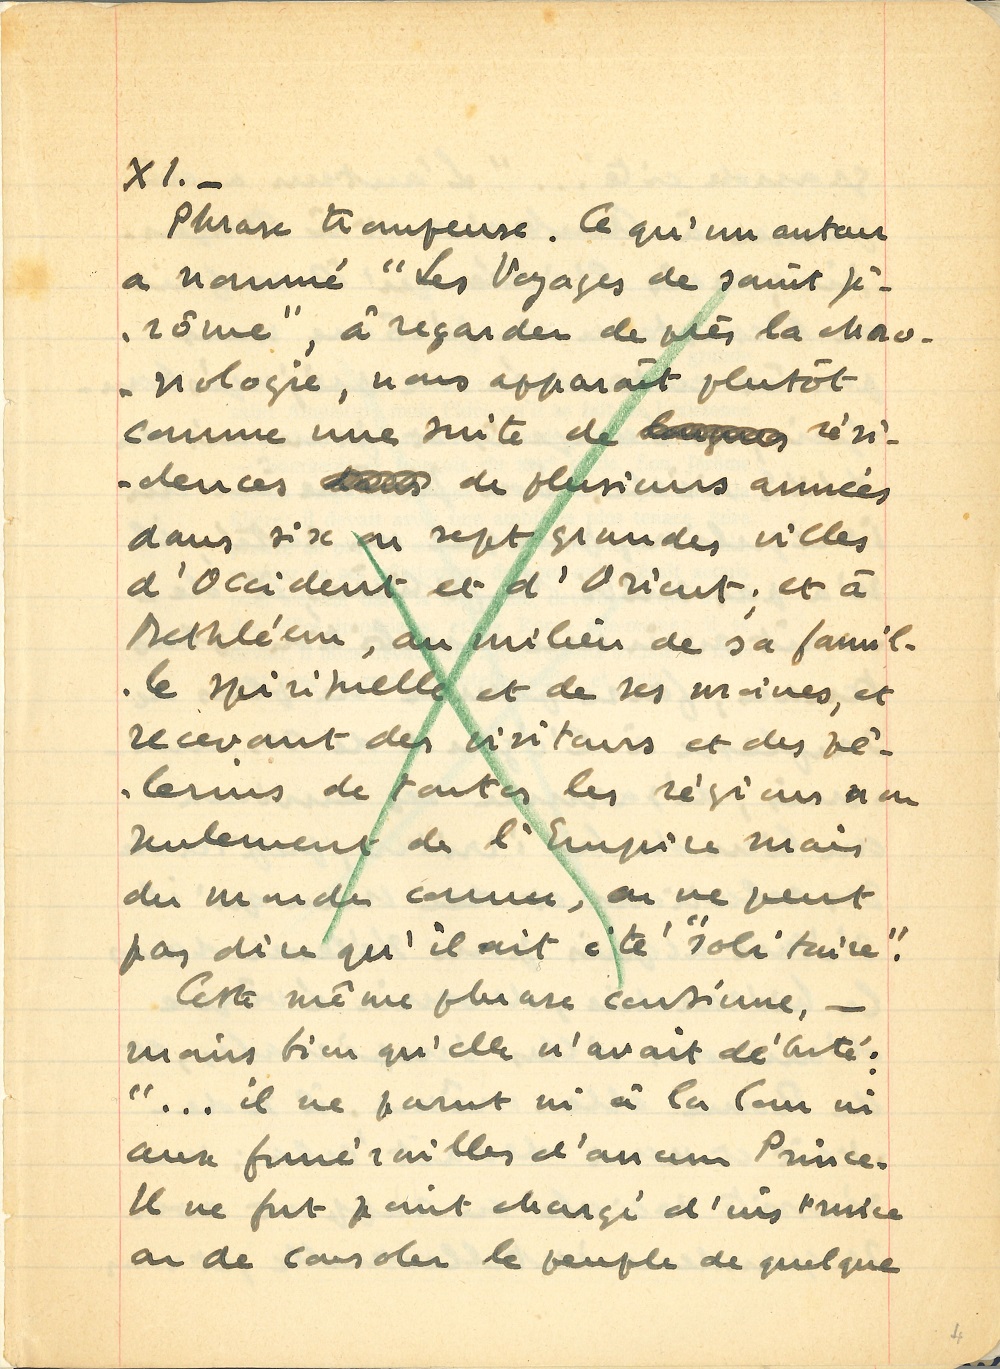 XI. —
Phrase trompeuse. Ce qu'un auteur
a nommé "Les Voyages de saint Jé-
-rôme", à regarder de près la chro-
-nologie, nous apparaît plutôt
comme une suite de longues rési-
-dences dans de plusieurs années
dans six ou sept grandes villes
d'Occident et d'Orient ; et à
Bethléem, au milieu de sa famil-
-le spirituelle et de ses moines, et
recevant des visiteurs et des pè-
-lerins de toutes les régions non
seulement de l'Empire mais
du monde connu, on ne peut
pas dire qu'il ait été "solitaire".
Cette même phrase continue, —
mais bien qu'elle n'avait débuté :
"... il ne parut ni à la Cour ni
aux funérailles d'aucun Prince.
Il ne fut point chargé d'instruire
ou de consoler le peuple de quelque
4